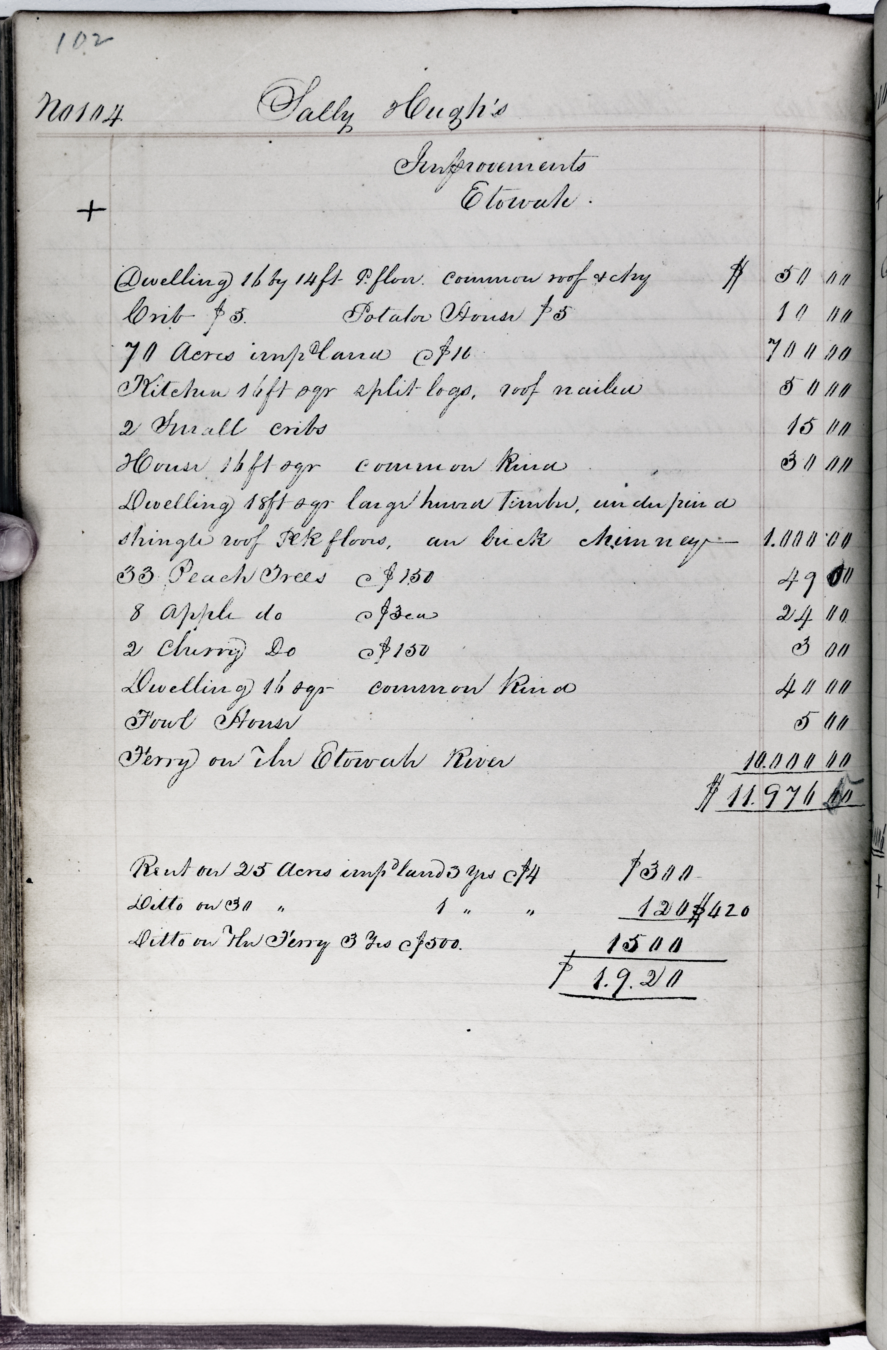 102
No 104 Sally Hugh's
Improvements
Etowah.
+
Dwelling 16 by 14 ft P. floor. common roof & chy $ 50 00
Crib $5. Potatoe House $5 10 00
70 Acres impd land c$10 700 00
Kitchen 16 ft sqr split logs, roof nailed 50 00
2 Small cribs 15 00
House 16 ft sqr common Kind 30 00
Dwelling 18 ft sqr large hewed Timber, underpind
shingle roof floors, an brick chimney 1.000 00
33 Peach Trees c$150 49 00
8 Apple do c$3 ea 24 00
2 Cherry Do c$150 3 00
Dwelling 16 sqr common Kind 40 00
Fowl House 5 00
Ferry on The Etowah River 10.000 00
$ 11.976
Rent on 25 Acres impd land 3 Yrs c$4 $300
Ditto on 30 " 1 " " 120 $420
Ditto on The Ferry 3 Yrs c$500. 1500
$ 1.9.20